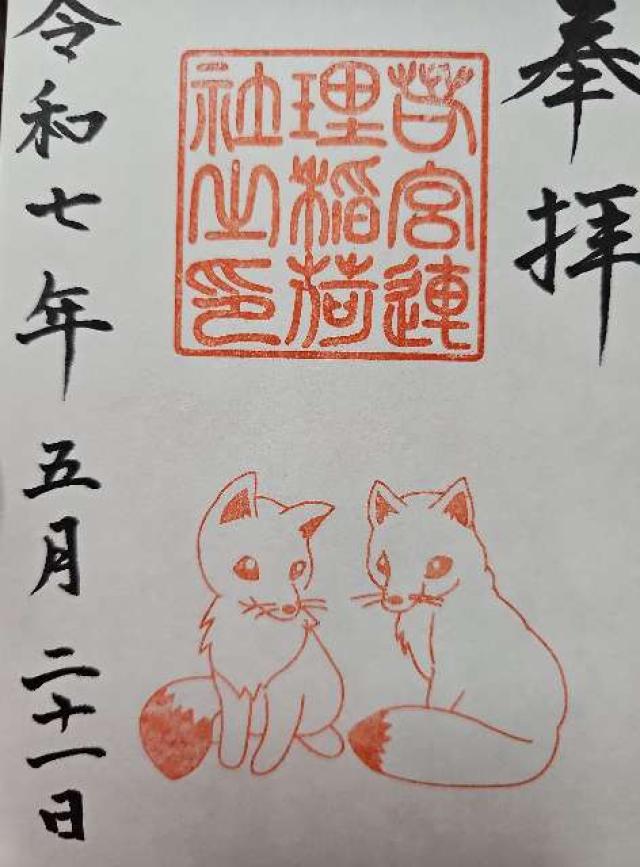 奉拝
若宮連
理稲荷
社之印
令和七年五月二十一日